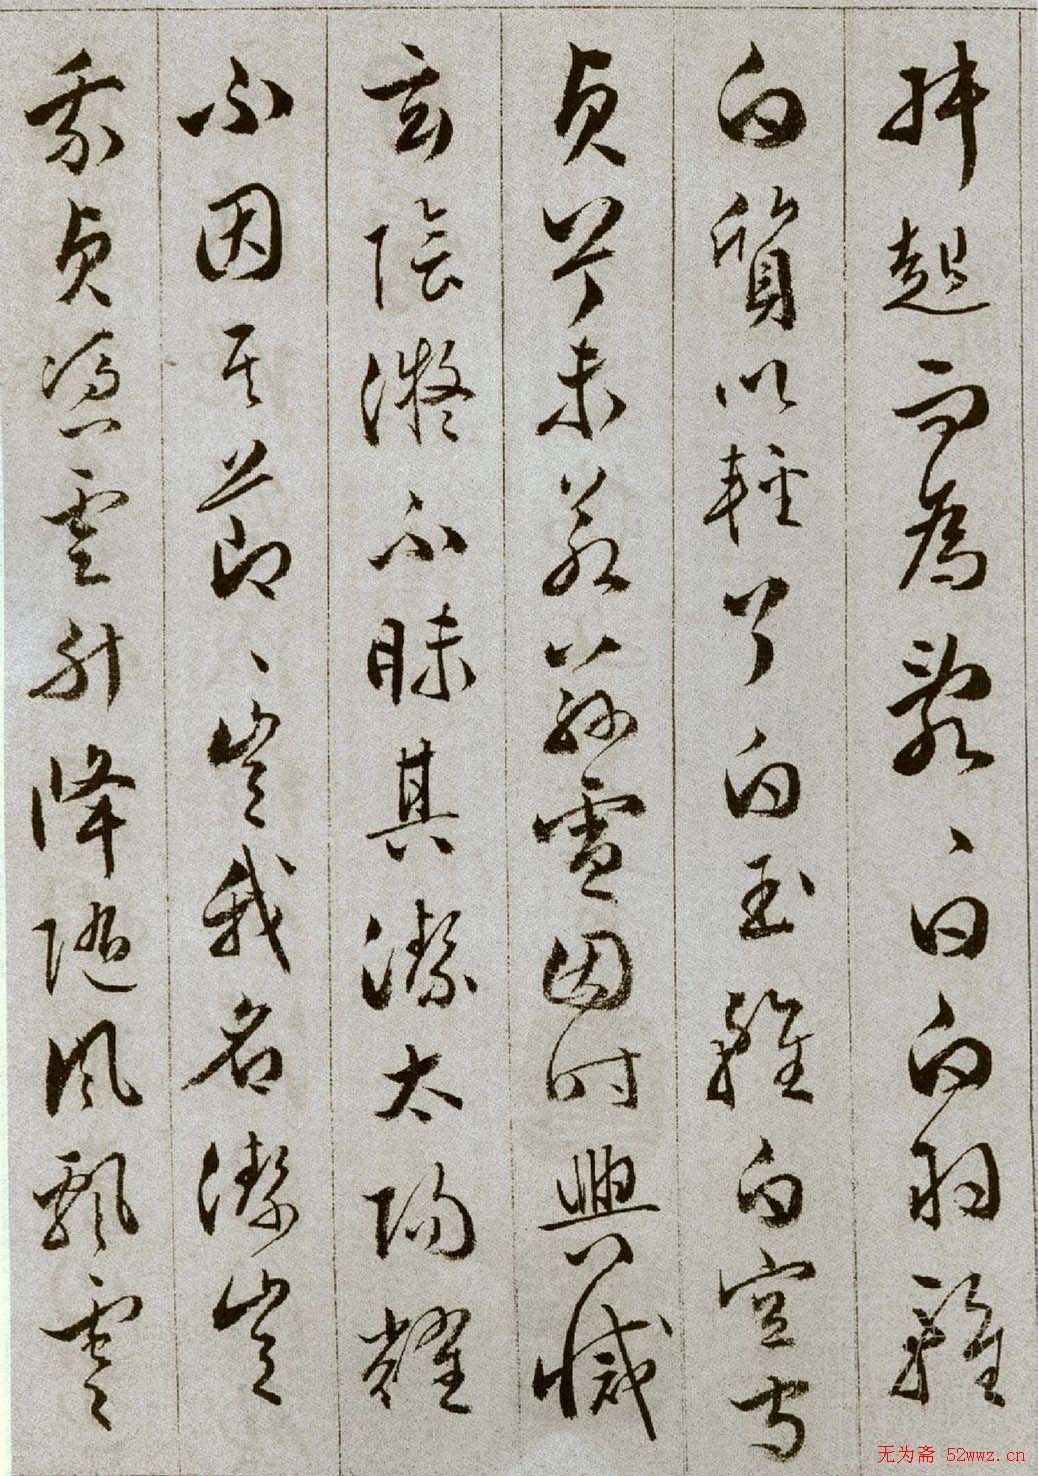 叔起而為亂〻曰白羽雖
白質以輕兮白玉雖白空守
貞兮未若茲雪因時興滅
玄陰凝不昧其潔太陽耀
不因其節〻豈我名潔豈
我貞憑雲升降隨風飄零
无为斋 52wwz.cn